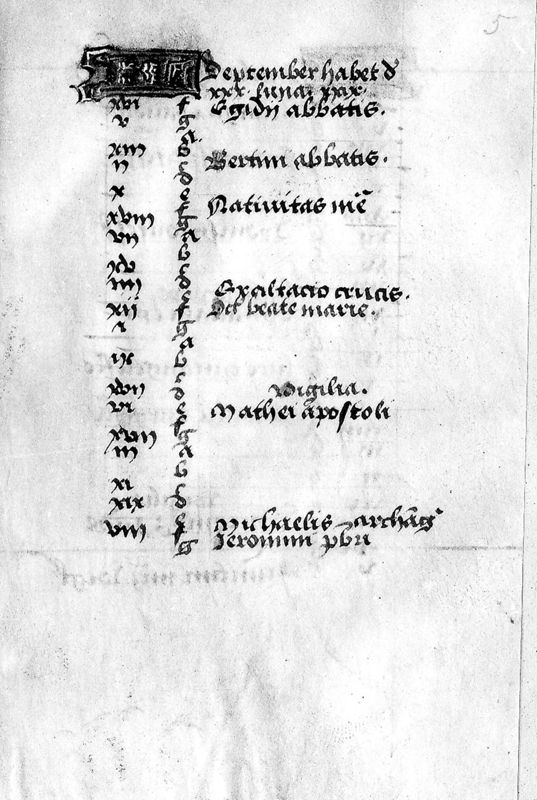 5
KL September habet d̄
xxx. luna xxix.
xvi f Egidij abbatis.
v g
A
xiii b
ii c Bertini abbatis.
d
x e
f Nativitas mē
xviii g
vii A
b
xv c
iiii d
e Exaltacio crucis.
xii f Oct beate marie.
i g
A
ix b
c
xvii d Vigilia.
vi e Mathei apostoli
f
xviii g
iii A
b
xi c
xix d
e
viii f Michaelis archāg
g Jeronimi pbri